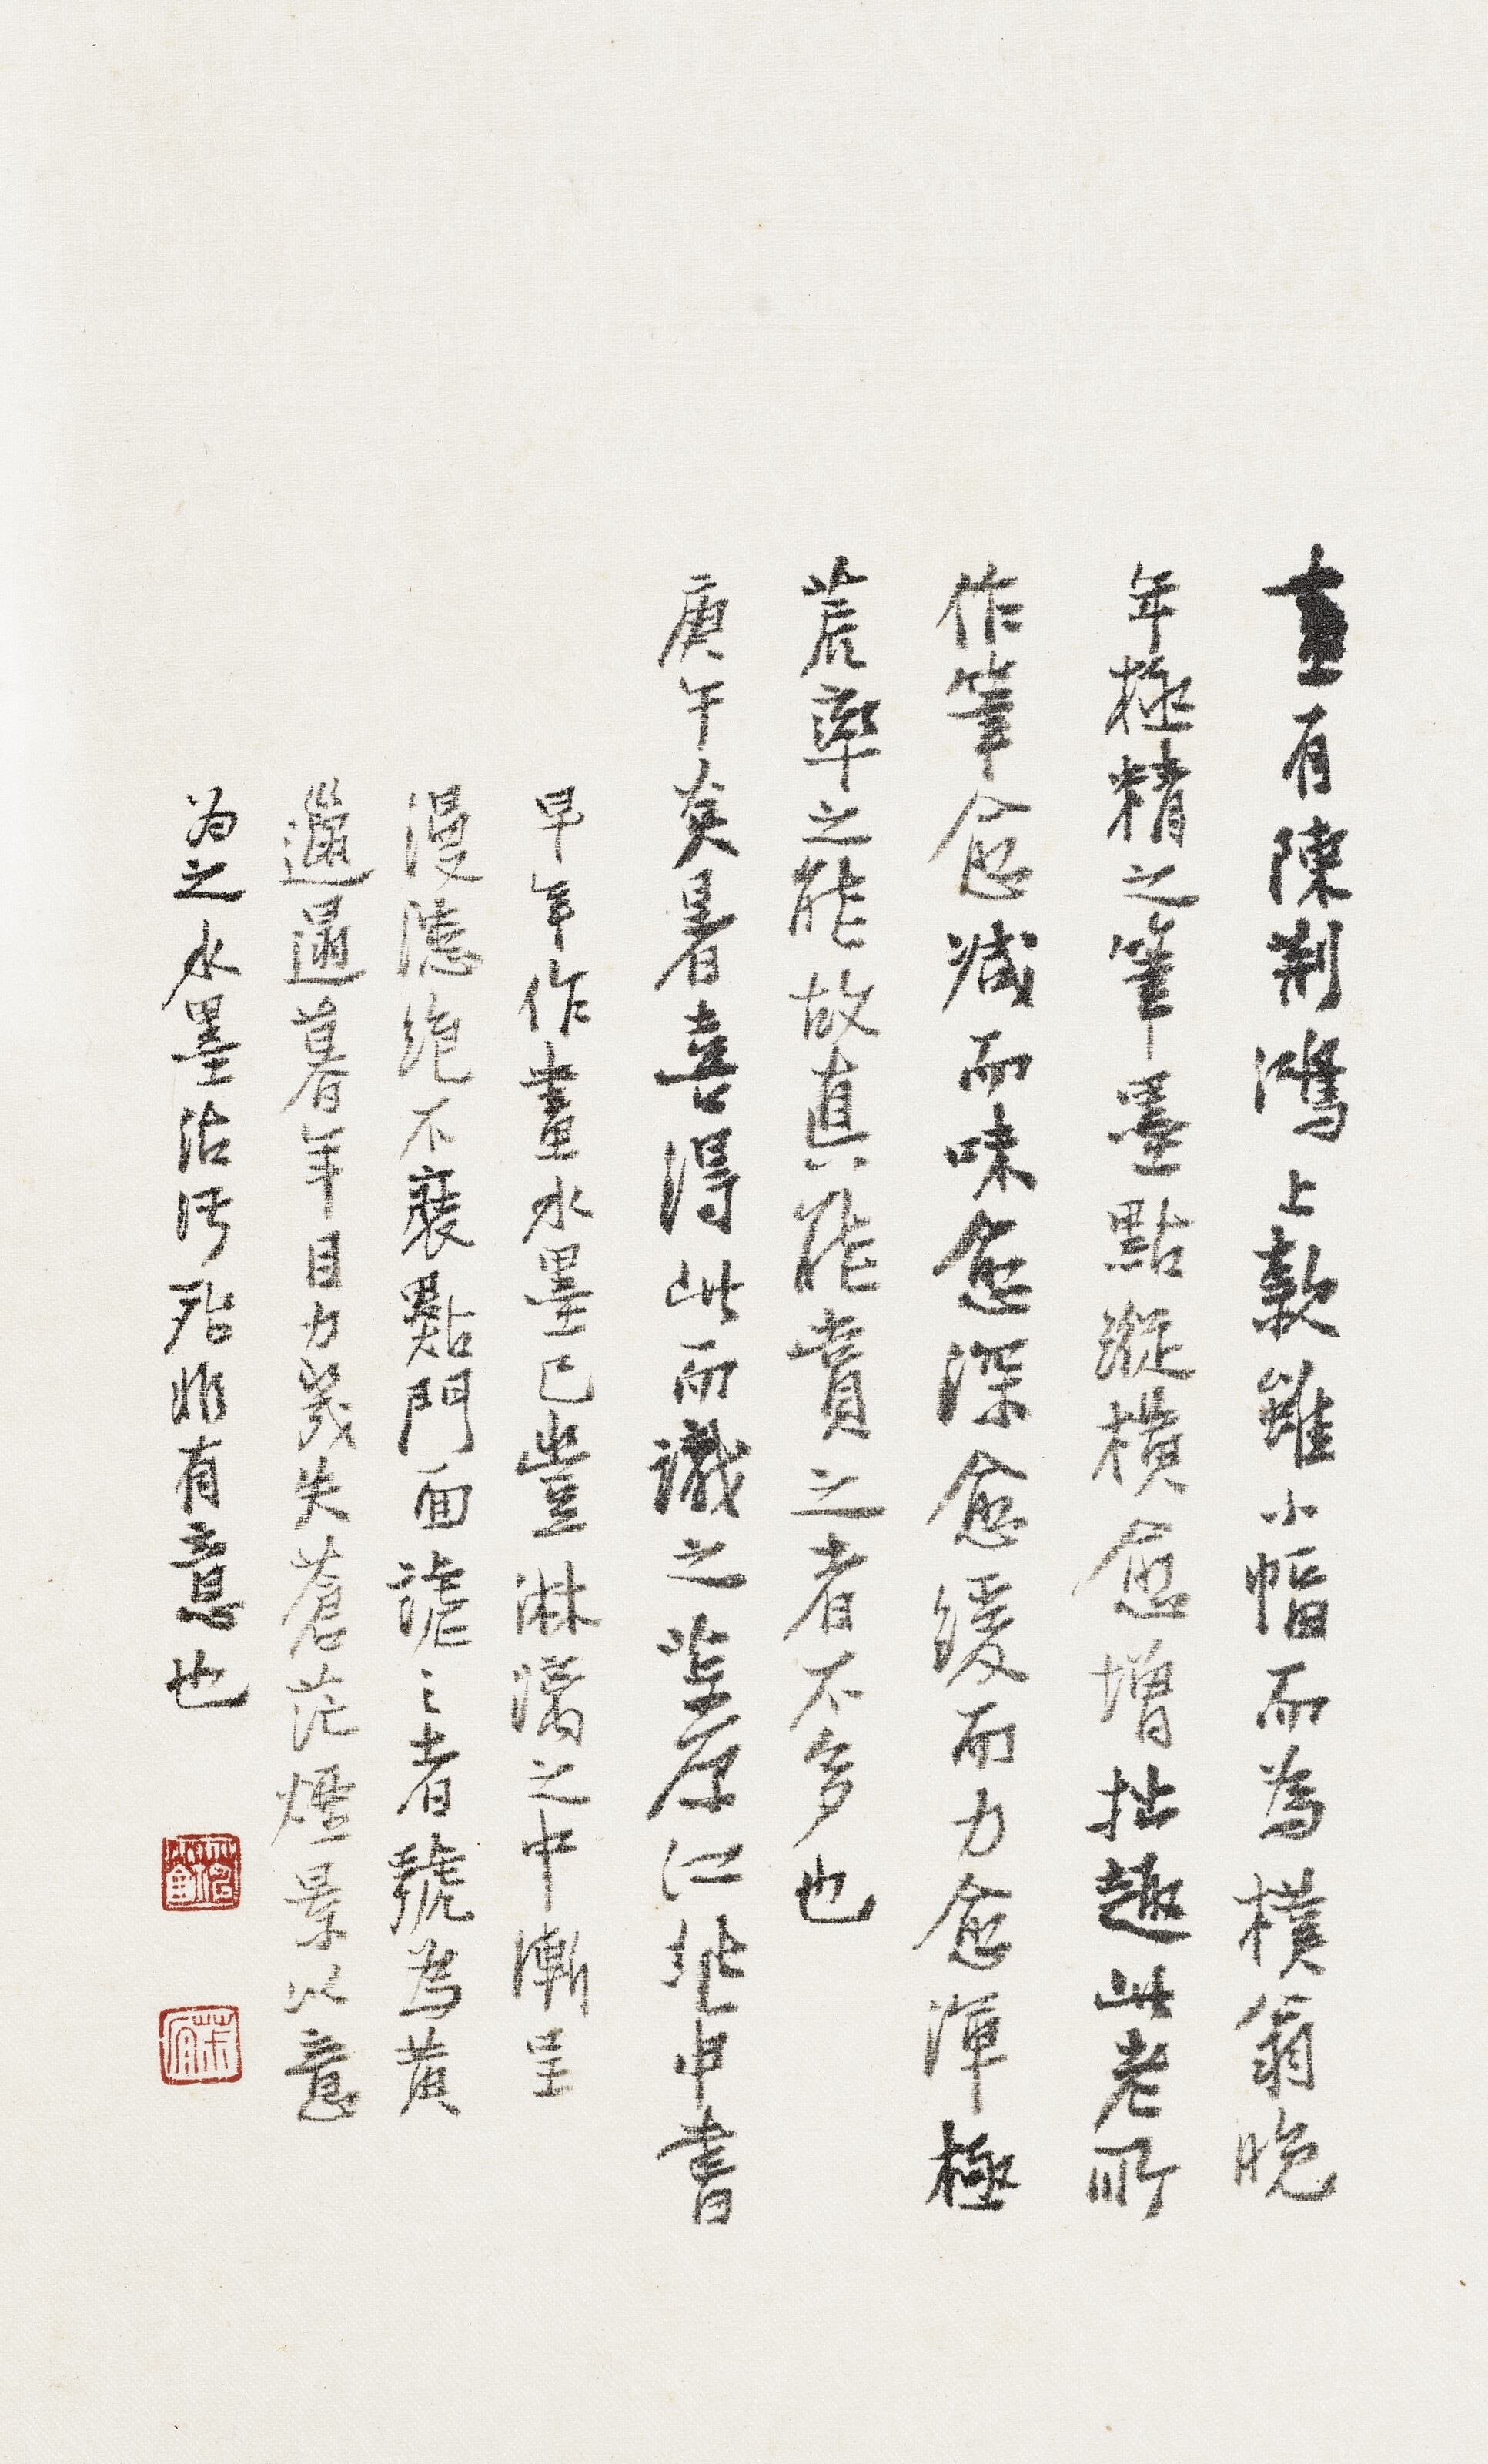 畫有陳荆鴻上款雖小幅而為樸翁晚
年極精之筆墨點縱橫愈增拙趣此老所
作筆愈減而味愈深愈緩而力愈渾極
荒率之能故真能賞之者不多也
庚午炎暑喜得此而識之萱原江兆申書
早年作畫水墨已豐淋漓之中漸呈
漫漶絕不裝點門面謔之者號為黃
邋遢暮年目力幾失蒼茫煙景以意
為之水墨沾污殆非有意也